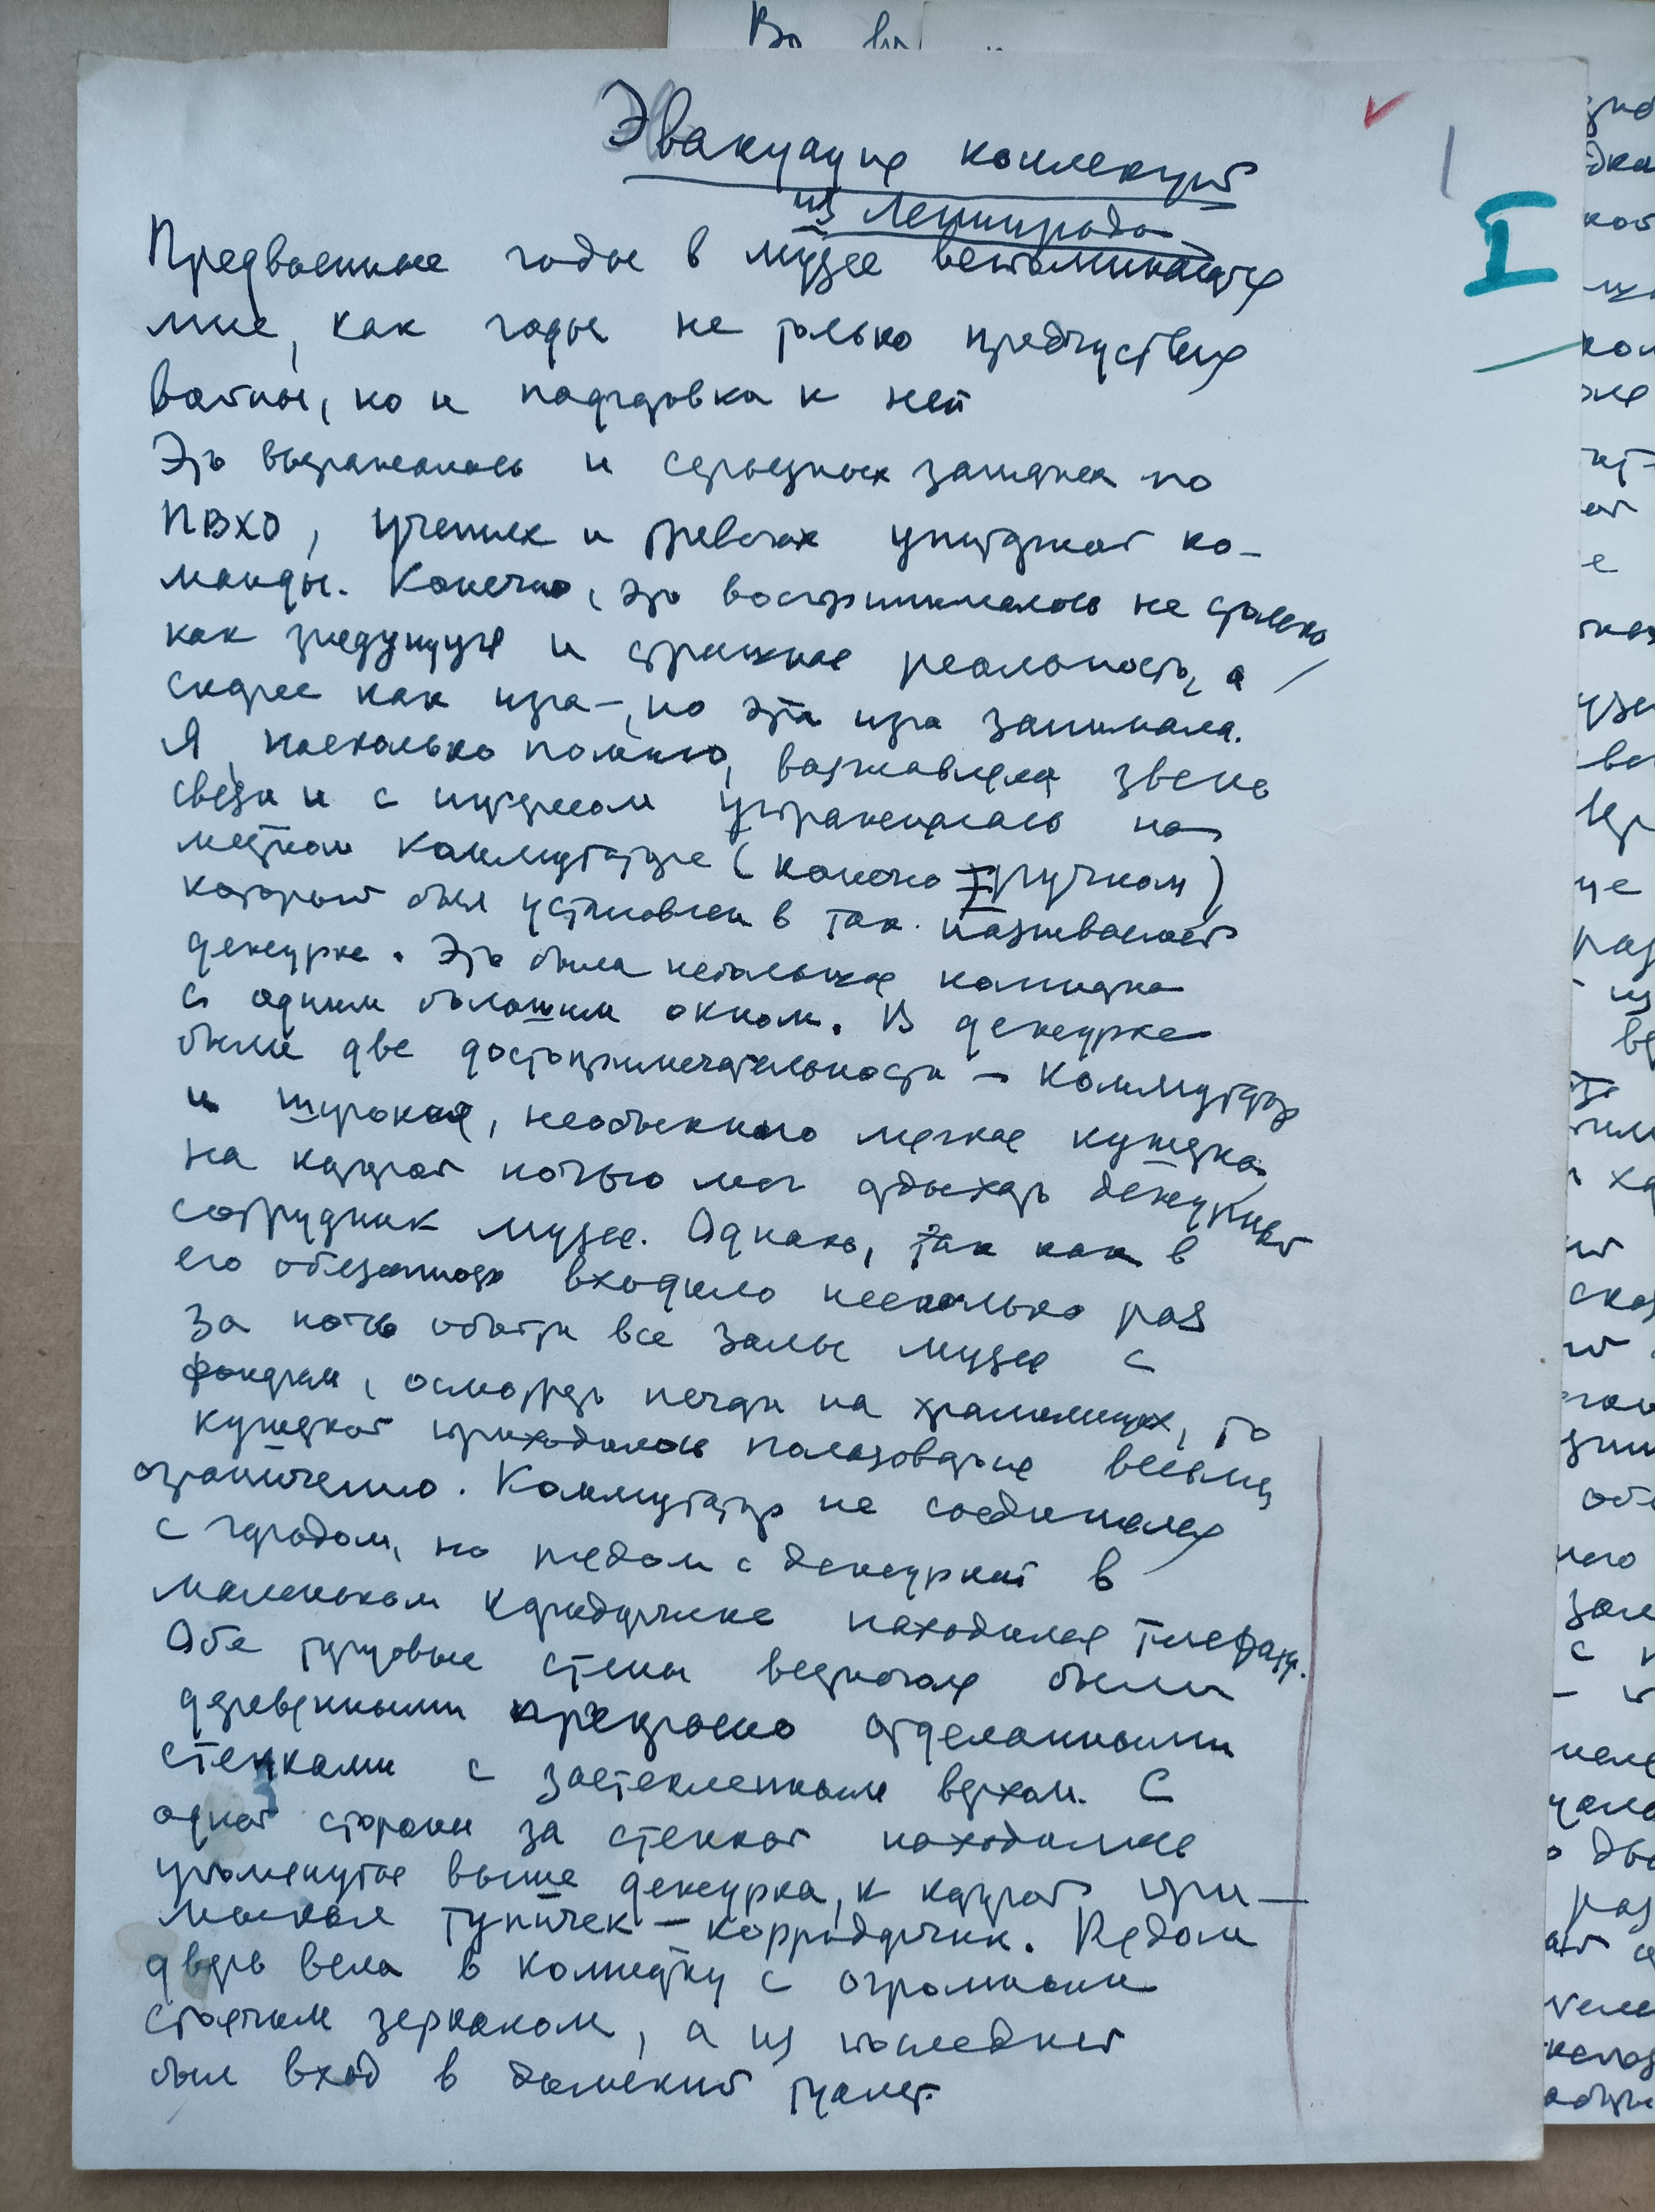 Эвакуация коллекций
из Ленинграда
I
Предвоенные годы в музее вспоминаются
мне, как годы не только предчувствия
войны, но и подготовка к ней
Это выражалось и серьезных занятиях по
ПВХО, учениях и тревогах унитарной ко-
манды. Конечно, это воспринималось не столько
как грядущая и страшная реальность, а
скорее как игра –, но эта игра занимала.
Я, насколько помню, возглавляла звено
связи и с интересом упражнялась на
местном коммутаторе (конечно ручном)
который был установлен в так. называемой
дежурке. Это была небольшая комната
с одним большим окном. В дежурке
были две достопримечательности – коммутатор
и широкая, необыкновенно мягкая кушетка,
на которой ночью мог отдыхать дежурный
сотрудник музея. Однако, так как в
его обязанности входило несколько раз
за ночь обойти все залы музея с
фонарем, осмотреть печати на хранилищах, то
кушеткой приходилось пользоваться весьма
ограниченно. Коммутатор не соединялся
с городом, но рядом с дежуркой в
маленьком коридорчике находился телефон.
Обе торцовые стены вестибюля были
деревянными прекрасно отделанными
стенками с застекленным верхом. С
одной стороны за стенкой находилась
упомянутая выше дежурка, к которой при-
мыкал тупичек – корридорчик. Рядом
дверь вела в комнатку с огромным
стоячим зеркалом, а из последней
был вход в дамский туалет.